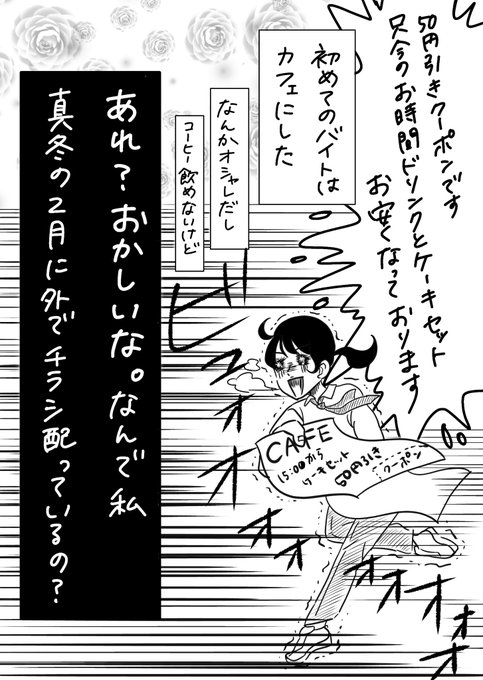 50円引きクーポンです
只今のお時間ドリンクとケーキセット
お安くなっております
初めてのバイトは
カフェにした
なんかオシャレだし
コーヒー飲めないけど
ビュオオオオオオ
CAFE
15:00から
ケーキセット
50円引き
クーポン
あれ?おかしいな。なんで私
真冬の2月に外でチラシ配っているの?